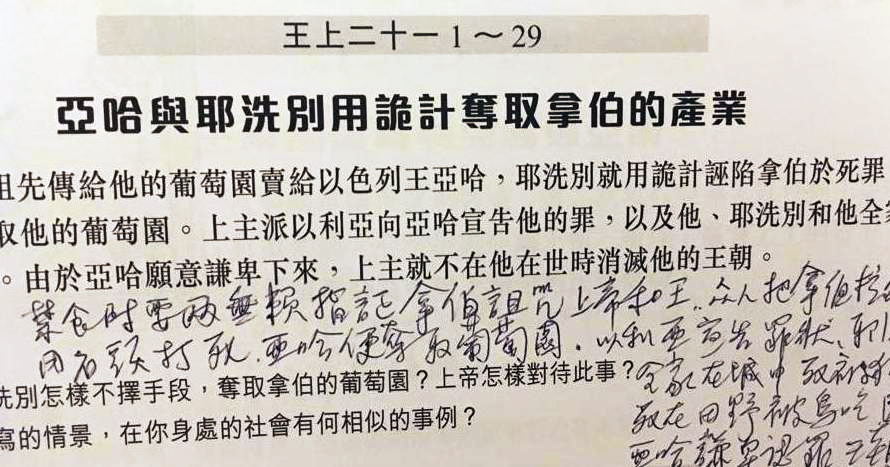 王上二十一 1～29
亞哈與耶洗別用詭計奪取拿伯的產業
祖先傳給他的葡萄園賣給以色列王亞哈，耶洗別就用詭計誣陷拿伯於死罪
取他的葡萄園。上主派以利亞向亞哈宣告他的罪，以及他、耶洗別和他全家
。由於亞哈願意謙卑下來，上主就不在他在世時消滅他的王朝。
禁食時要兩無賴指証拿伯詛咒上帝和王，众人把拿伯拉
用石頭打死，亞哈便奪取葡萄園。以利亞宣告罪狀，耶
洗別怎樣不擇手段，奪取拿伯的葡萄園？上帝怎樣對待此事？
全家在城中死被狗
寫的情景，在你身處的社會有何相似的事例？
死在田野被鳥吃
亞哈謙卑認罪